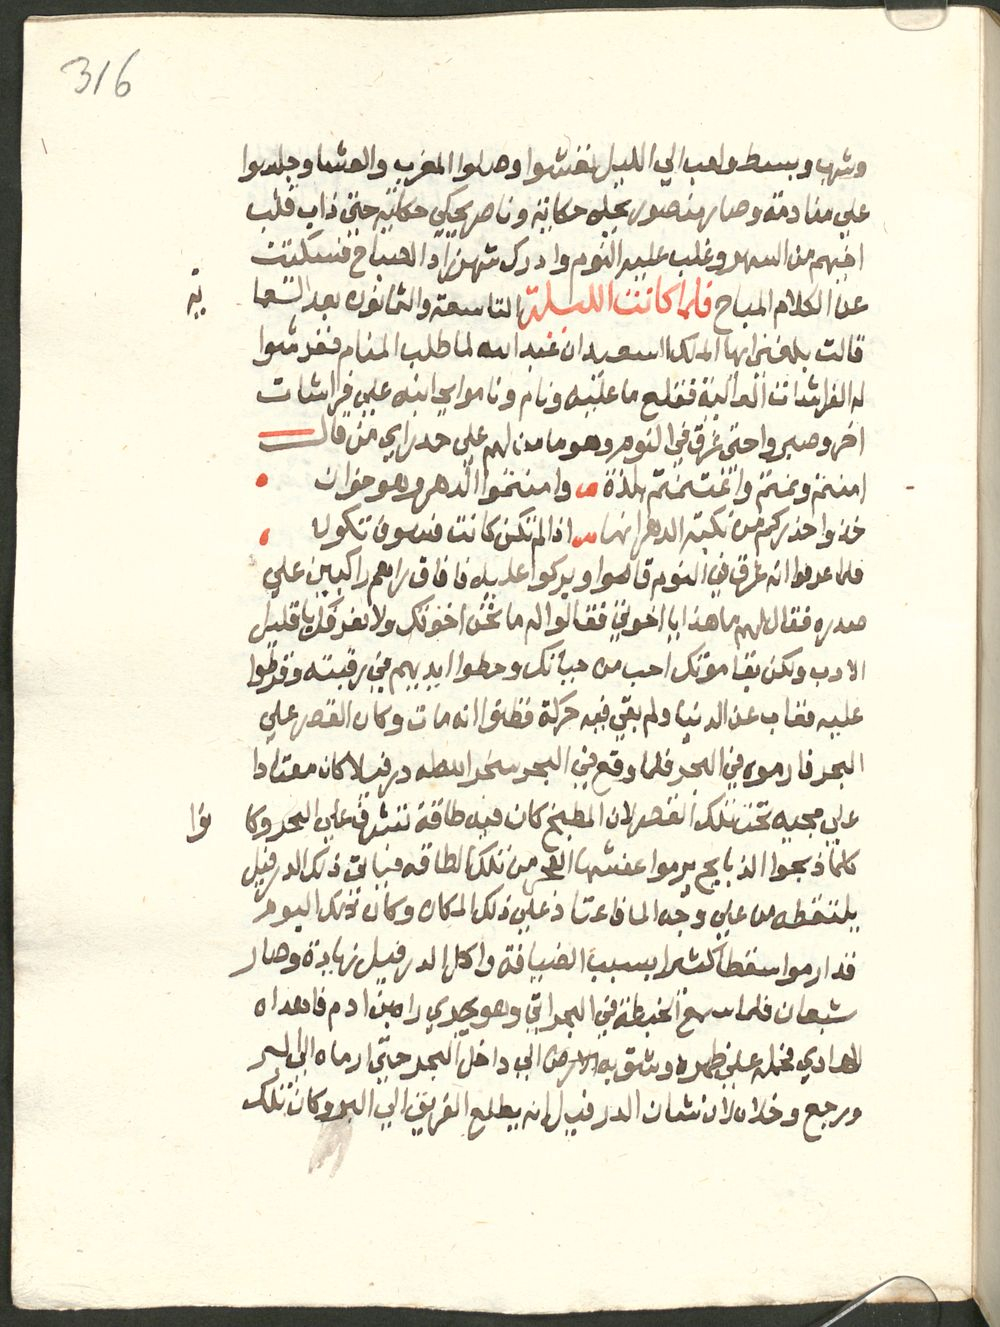 316
وشرب وبسط ولعب الي الليل تعشوا وصلوا المغرب والعشا وجلسوا
علي منادمة وصار منصور يحكي حكاية وناصر يحكي حكاية حتي ذاب قلب
اخيهم من السهر وغلب عليه النوم وادرك شهرزاد الصباح فسكتت
عن الكلام المباح فلما كانت الليلة التاسعة والثمانون بعد التسعما
ية
قالت بلغني ايها الملك السعيد ان عبد الله لما طلب المنام ففرشوا
له الفراشات العالية فقلع ما عليه ونام وناموا بجانبه علي فراشات
اخر وصبروا حتي غرق في النوم وهو مامن لهم علي حد راي من قال
امنتم ونمتم واغتنمتم بلذة وامنتموا الدهر وهو خوان
خذوا حذركم من نكبة الدهر انها اذا لم تكن كانت فسوف تكون
فلما عرفوا انه غرق في النوم قاموا وبركوا عليه فافاق راهم راكبين علي
صدره فقال لهم ما هذا يا اخوتي فقالوا له ما نحن اخوتك ولا نعرفك يا قليل
الادب ولكن بقا موتك احب من حياتك وحطوا ايديهم في رقبته وقرطوا
عليه فغاب عن الدنيا ولم بقي فيه حركة فظنوا انه مات وكان القصر علي
البحر فارموه في البحر فلما وقع في البحر سخر الله له درفيلا كان معتادا
علي مجيه تحت تلك القصر لان المطبخ كان فيه طاقة تشرف علي البحر وكا
نوا
كلما ذبحوا الذبايح يرموا عفشها البحر من تلك الطاقه فياتي ذلك الدرفيل
يلتقطه من علي وجه الما فاعتاد علي ذلك المكان وكان ذلك اليوم
قد ارموا سقطا كثيرا بسبب الضيافة واكل الدرفيل زيادة وصار
شبعان فلما سمع الخبطة في البحر اتي وهو يجري راه بن ادم فاهداه
الهادي فحمله علي ظهره وشق به العرض الي داخل البحر حتي ارماه الي البر
ورجع وخلاه لان شان الدرفيل انه يطلع الغريق الي البر وكان تلك